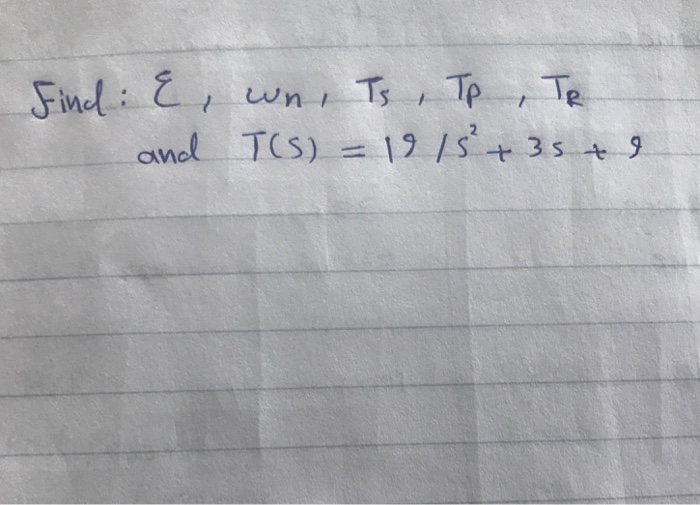 Find: ξ, ωn, Ts, Tp, TR
and T(S) = 19 / s² + 3s + 9